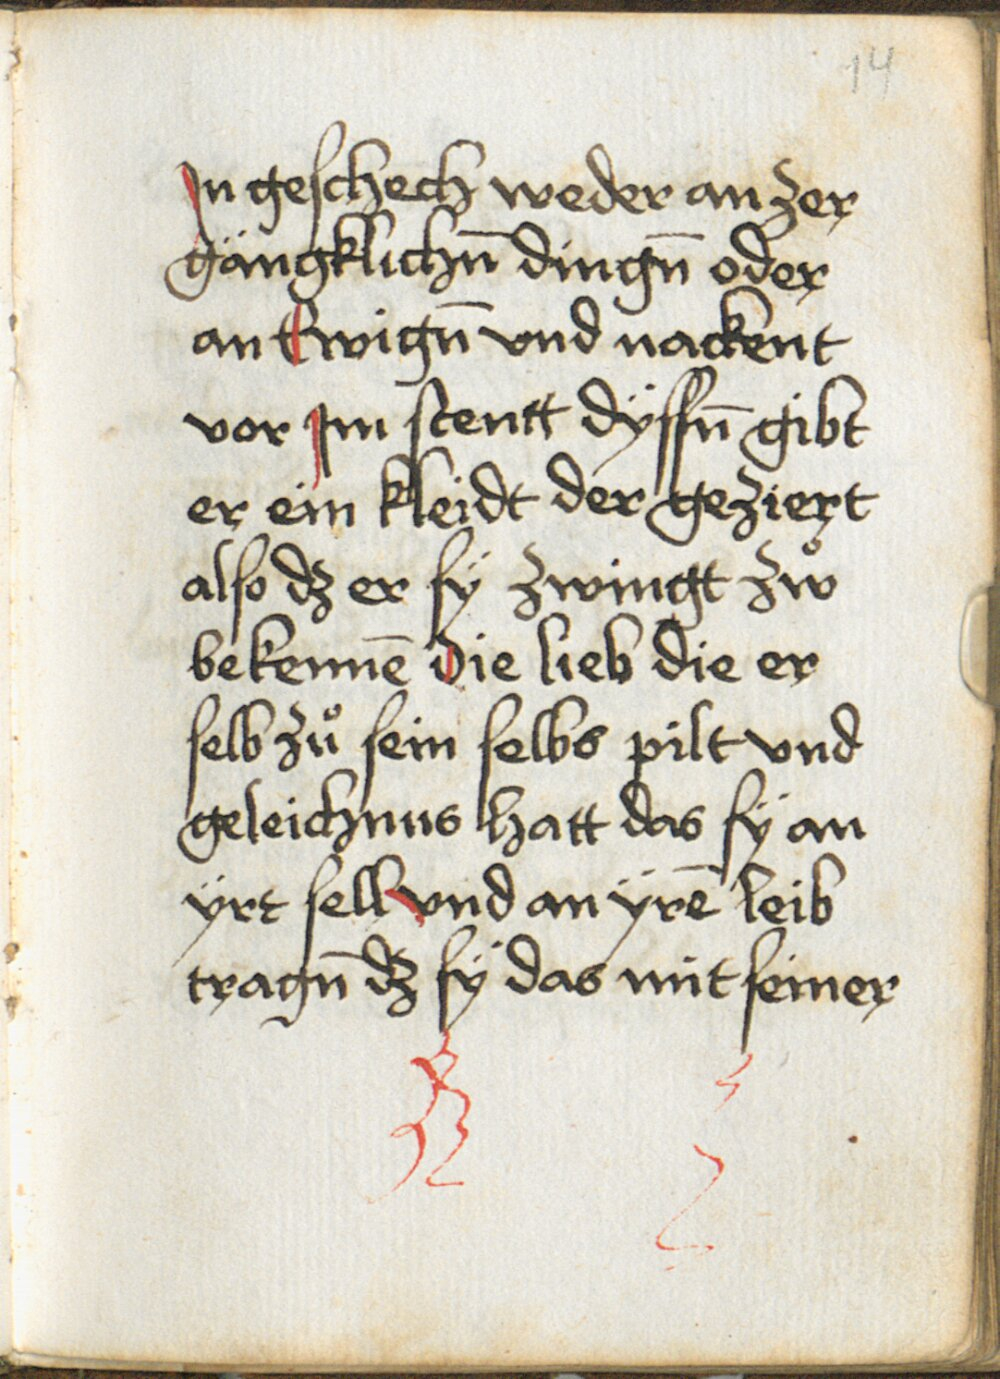 14
In geschech weder an zer
gängklichn̄ dingn̄ oder
an Ewign̄ vnd nackent
vor Im stentt dÿssn̄ gibt
er ein kleidt der geziert
also dz er sÿ zwingt zẘ
bekennē Die lieb die er
selb zů sein selbs pilt vnd
geleichnus hatt das sÿ an
ÿrt sell vnd an ÿrē leib
tragn̄ dz sÿ das mit seiner